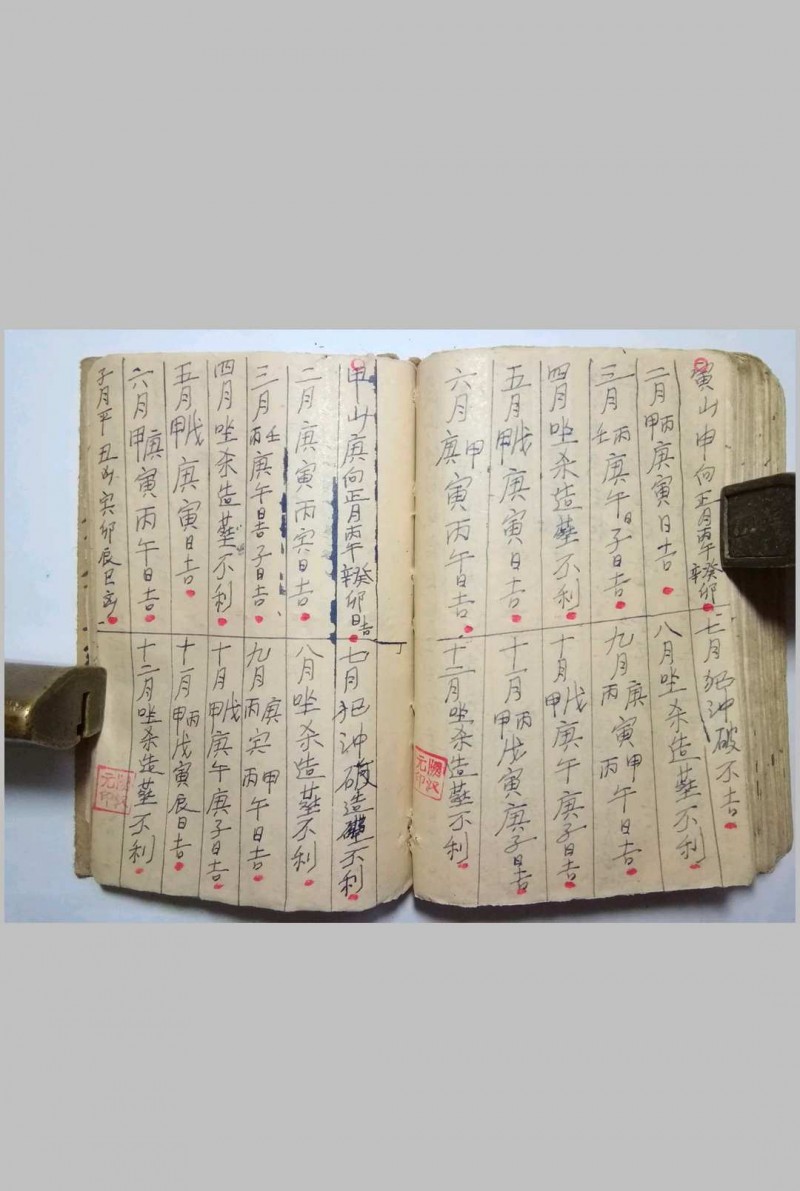 寅山申向正月丙午辛癸卯
二月甲丙庚寅日吉
三月壬丙庚午日子日吉
四月坐杀造葬不利
五月甲戊庚寅日吉
六月庚甲寅丙午日吉
七月犯冲破不吉
八月坐杀造葬不利
九月丙庚寅丙甲午日吉
十月甲戊庚午庚子日吉
十一月甲丙戊寅庚子日吉
十二月坐杀造葬不利
甲山庚向正月丙午辛癸卯日吉
二月庚寅丙寅日吉
三月丙壬庚午日吉子日吉
四月坐杀造葬不利
五月甲戊庚寅日吉
六月甲庚寅丙午日吉
子月平丑山寅卯辰巳
七月犯冲破造葬不利
八月坐杀造葬不利
九月丙庚寅丙甲午日吉
十月甲戊庚午庚子日吉
十一月甲丙戊寅辰日吉
十二月坐杀造葬不利